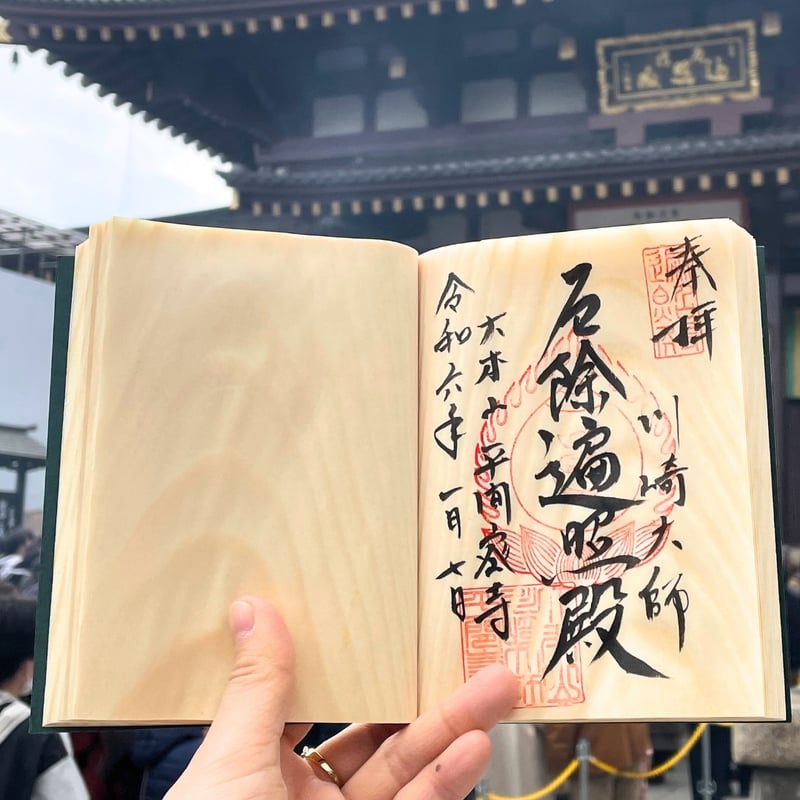 奉拝
川崎大師
厄除遍照殿
大本山 平間密寺
令和六年 一月七日